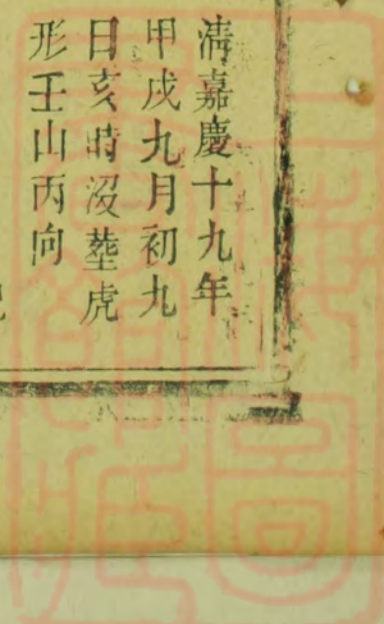 清嘉慶十九年
甲戌九月初九
日亥時没塟虎
形壬山丙向